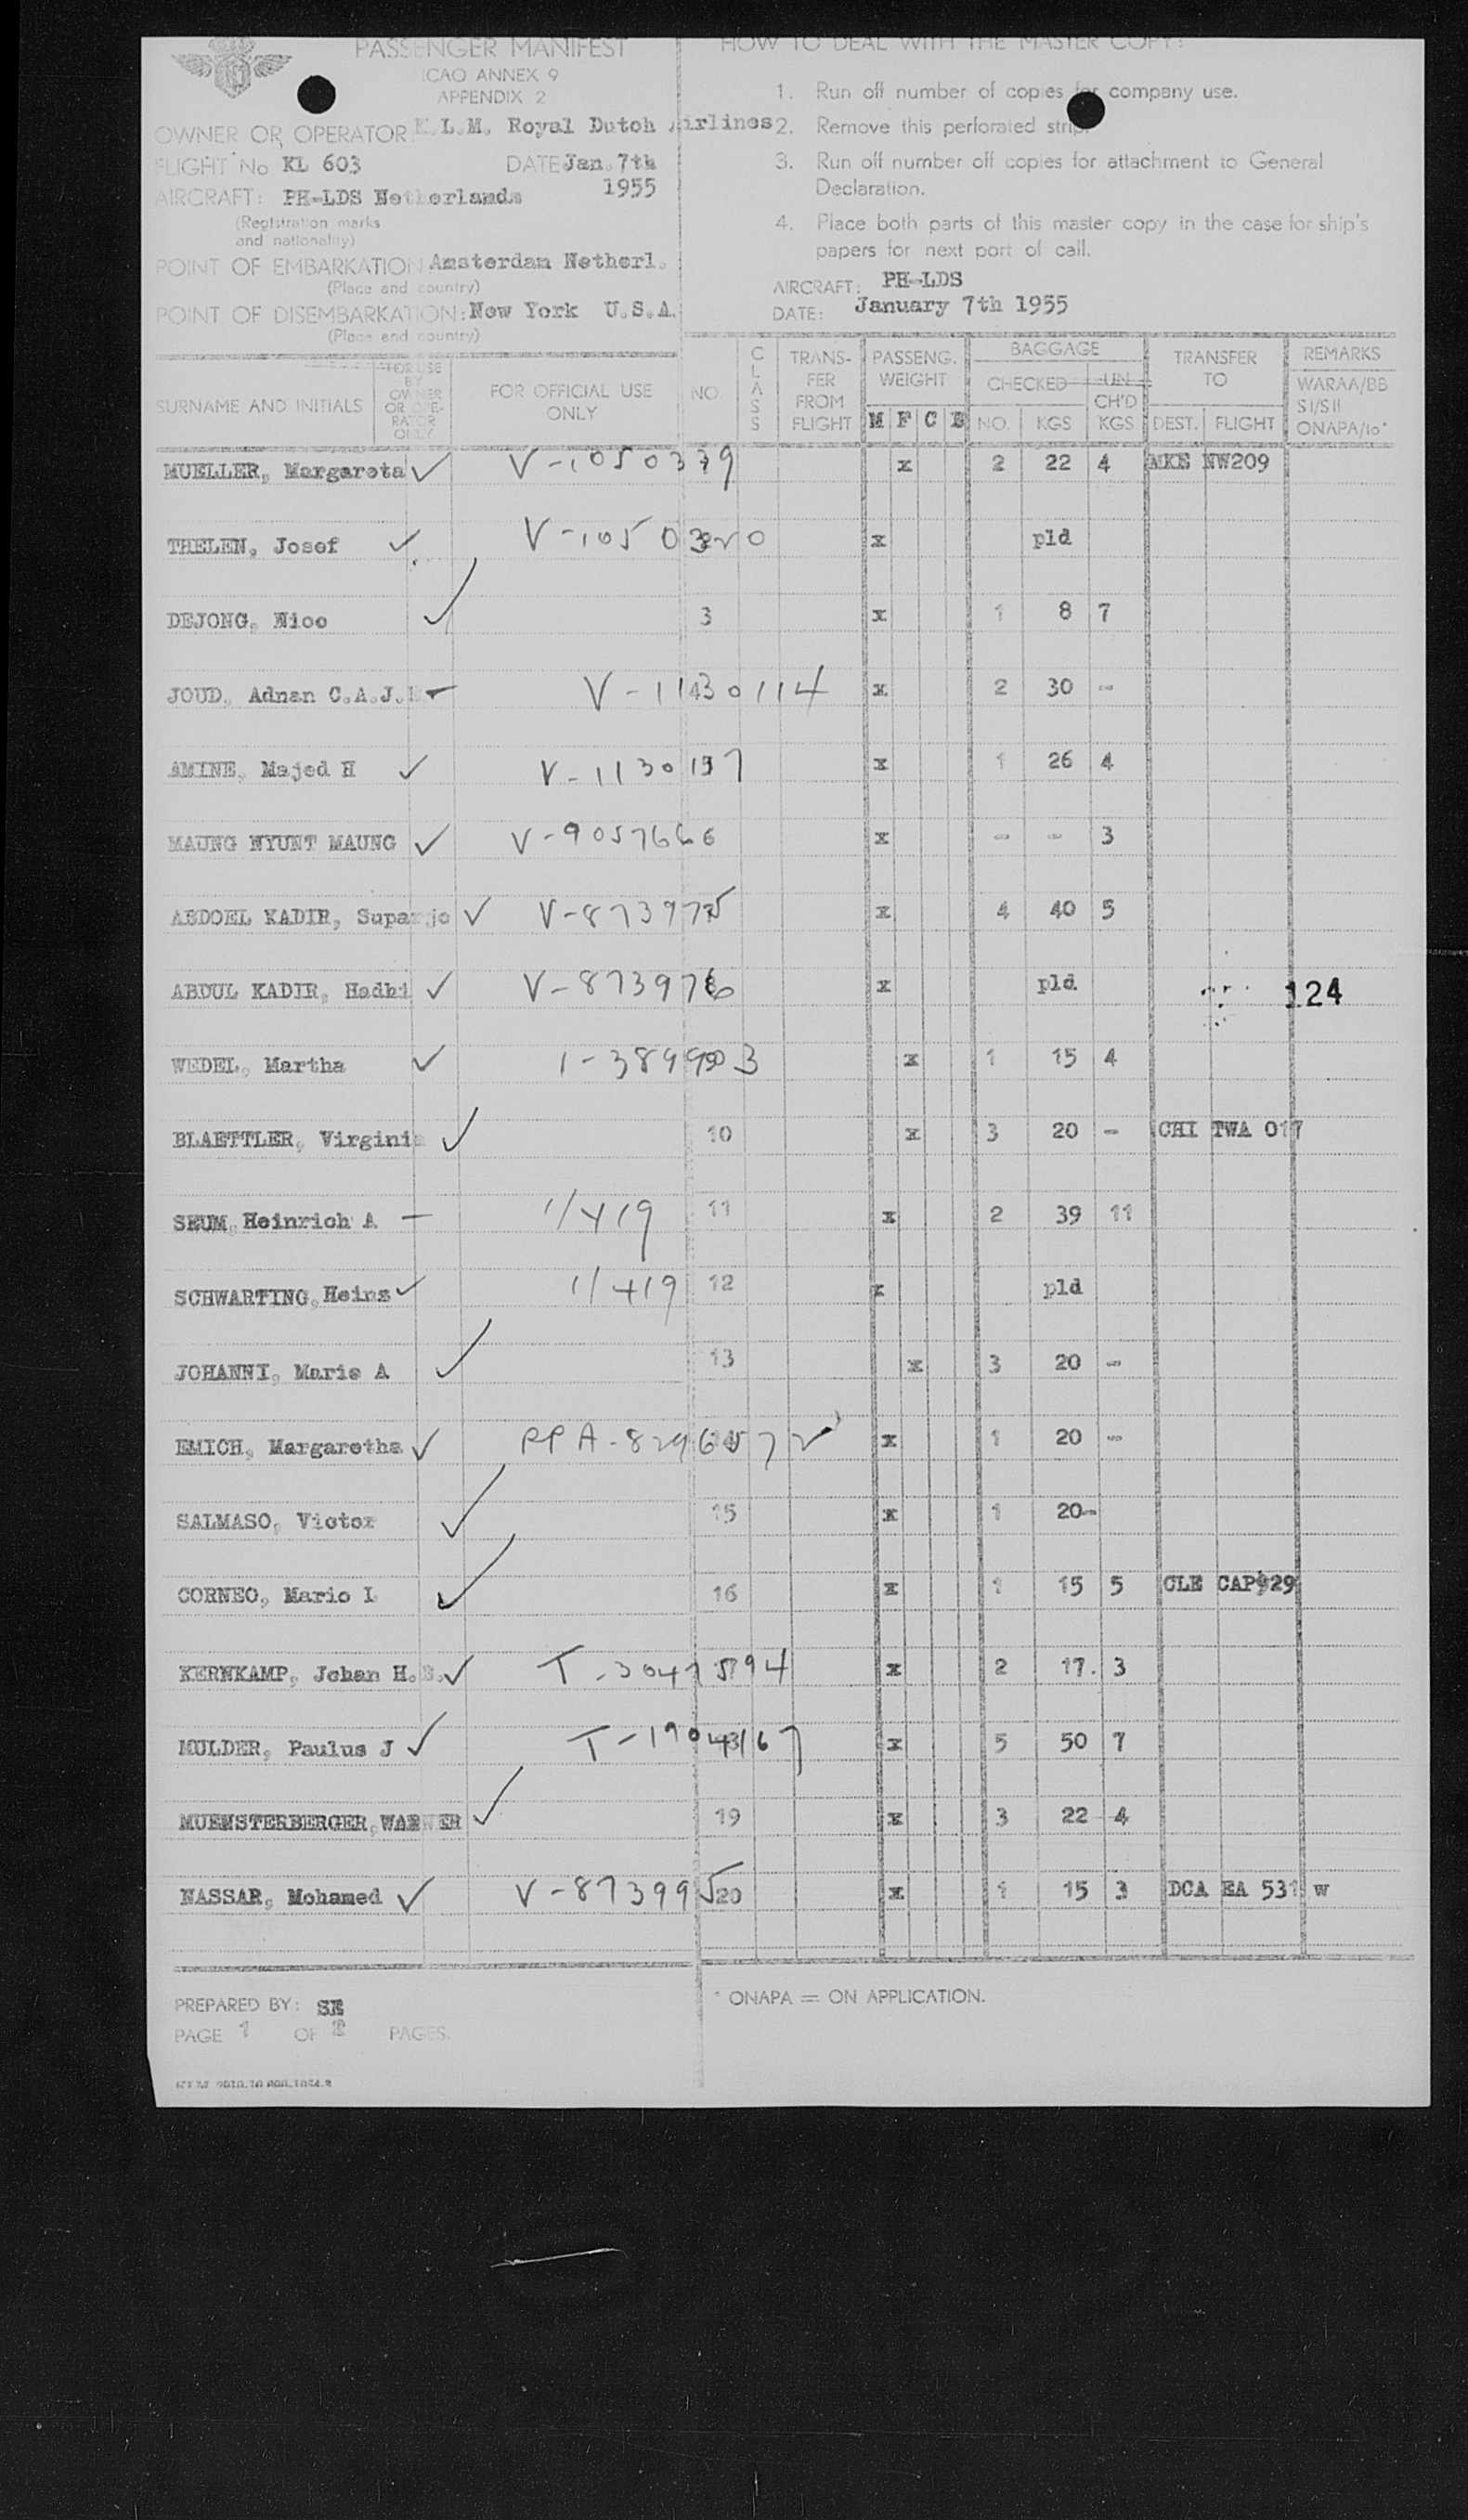 PASSENGER MANIFEST
ICAO ANNEX 9
APPENDIX 2
OWNER OR OPERATOR: K.L.M. Royal Dutch Airlines
FLIGHT No KL 603 DATE Jan. 7th
1955
AIRCRAFT: PH-LDS Netherlands
(Registration marks
and nationality)
POINT OF EMBARKATION: Amsterdam Netherl.
(Place and country)
POINT OF DISEMBARKATION: New York U.S.A.
(Place and country)
HOW TO DEAL WITH THE MASTER COPY:
1. Run off number of copies for company use.
2. Remove this perforated strip.
3. Run off number off copies for attachment to General
Declaration.
4. Place both parts of this master copy in the case for ship's
papers for next port of call.
AIRCRAFT: PH-LDS
DATE: January 7th 1955
SURNAME AND INITIALS
FOR USE
BY
OWNER
OR OPE-
RATOR
ONLY
FOR OFFICIAL USE
ONLY
NO.
CLASS
TRANS-
FER
FROM
FLIGHT
PASSENG.
WEIGHT
M F C B
BAGGAGE
CHECKED
NO. KGS
UN
CH'D
KGS
TRANSFER
TO
DEST. FLIGHT
REMARKS
WARAA/BB
SI/SII
ONAPA/10*
MUELLER, Margareta ✓ V-1050379 x 2 22 4 MKE NW209
THELEN, Josef ✓ V-1050320 x pld
DEJONG, Nico ✓ 3 x 1 8 7
JOUD, Adnan C.A.J. V-1130114 x 2 30 -
AMINE, Majed H ✓ V-1130137 x 1 26 4
MAUNG NYUNT MAUNG ✓ V-9057666 x - - 3
ABDOEL KADIR, Suparjo ✓ V-873975 x 4 40 5
ABDUL KADIR, Hadhi ✓ V-873976 x pld
124
WEDEL, Martha ✓ 1-389903 x 1 15 4
BLAETTLER, Virginia ✓ 10 x 3 20 - CHI TWA 017
SEUM, Heinrich A — 1/419 11 x 2 39 11
SCHWARTING, Heinz ✓ 1/419 12 x pld
JOHANNI, Marie A ✓ 13 x 3 20 -
EMICH, Margaretha ✓ PPA-8296572 x 1 20 -
SALMASO, Victor ✓ 15 x 1 20-
CORNEO, Mario L ✓ 16 x 1 15 5 CLE CAP929
KERNKAMP, Johan H. ✓ T-3047594 x 2 17. 3
MULDER, Paulus J ✓ T-1904367 x 5 50 7
MUENSTERBERGER, WARNER ✓ 19 x 3 22 4
NASSAR, Mohamed ✓ V-873995 20 x 1 15 3 DCA EA 531 w
PREPARED BY: SE
PAGE 1 OF PAGES.
* ONAPA = ON APPLICATION.